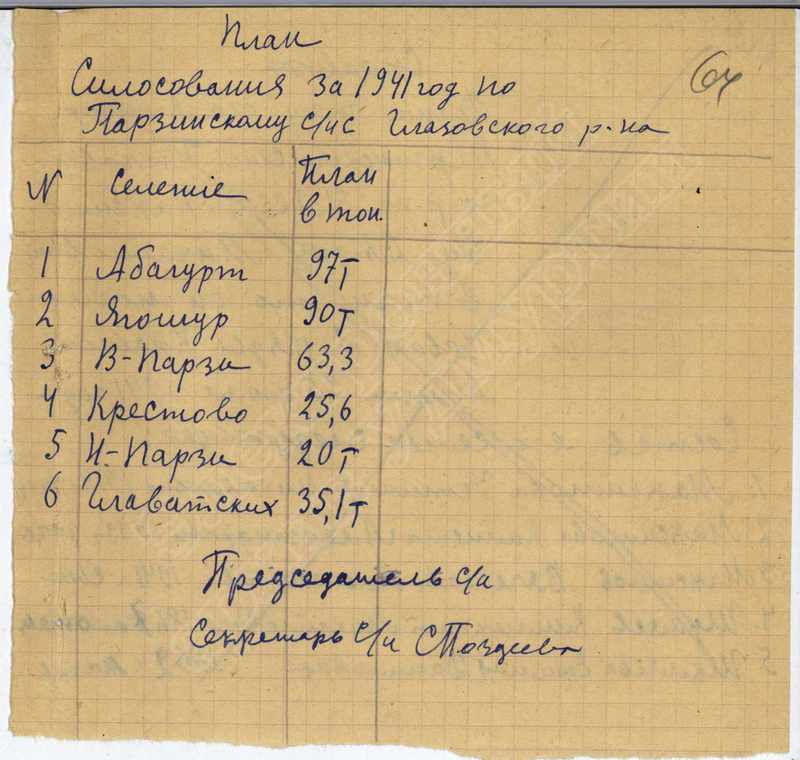 План
64
Силосования за 1941 год по
Парзинскому с/ис Глазовского р-на
N Селение План в тон.
1 Абагурт 97т
2 Ягошур 90т
3 В-Парзи 63,3
4 Крестово 25,6
5 Н-Парзи 20т
6 Главатских 35,1т
Председатель с/и
Секретарь с/и